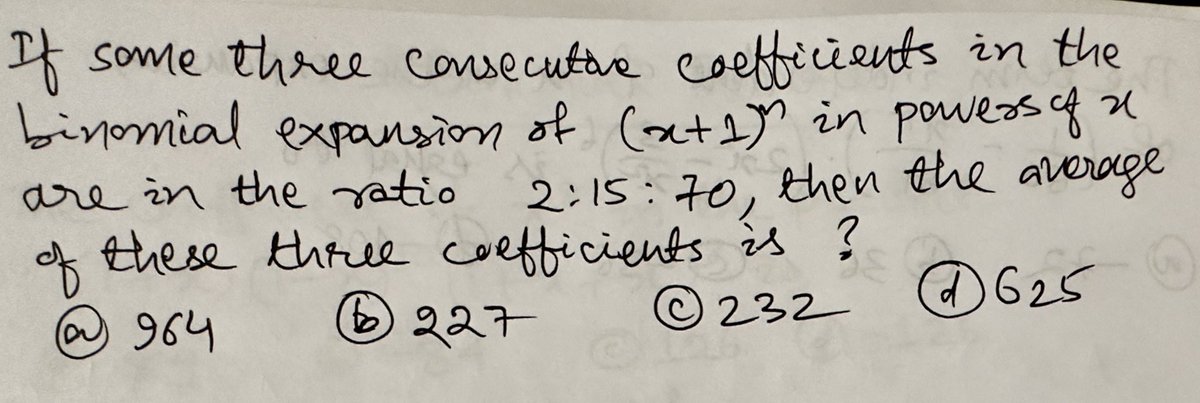 If some three consecutive coefficients in the
binomial expansion of (x+1)ⁿ in powers of x
are in the ratio 2:15:70, then the average
of these three coefficients is ?
ⓐ 964 ⓑ 227 ⓒ 232 ⓓ 625